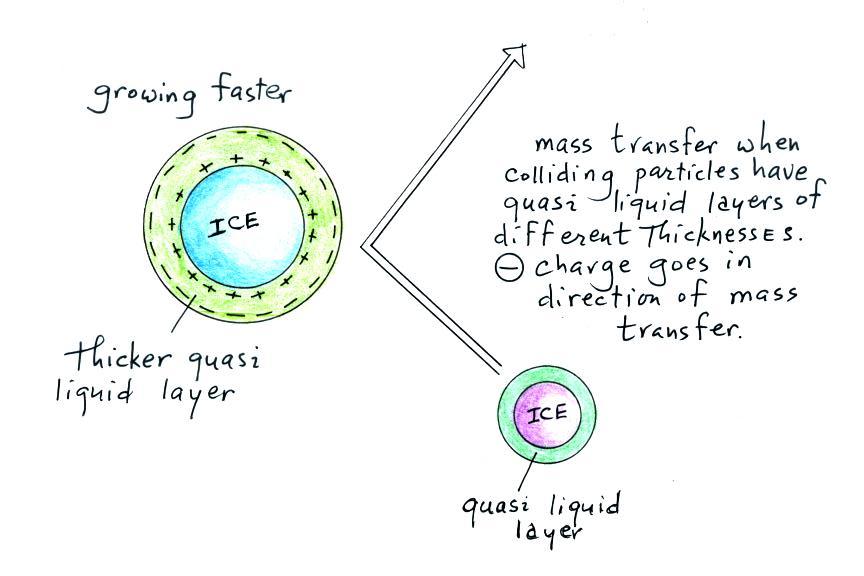 growing faster
ICE
thicker quasi
liquid layer
mass transfer when
colliding particles have
quasi liquid layers of
different Thicknesses.
⊖ charge goes in
direction of mass
transfer.
ICE
quasi liquid
layer